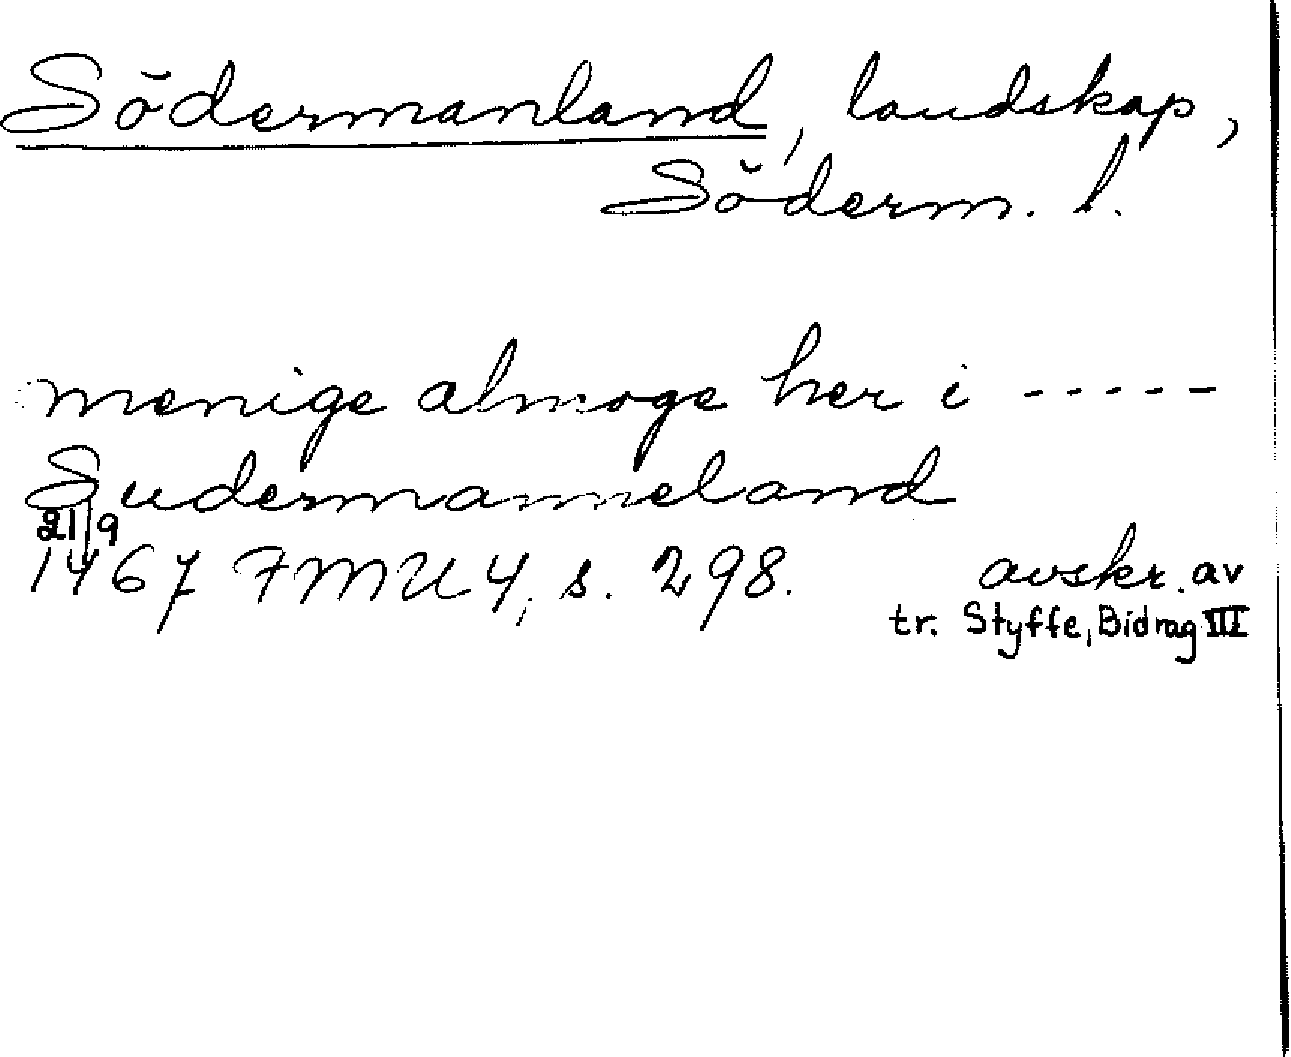 Södermanland, landskap,
Söderm. l.
menige almoge her i -----
Sudermanneland
21/9
1467 FMU 4, s. 298. avskr. av
tr. Styffe, Bidrag III